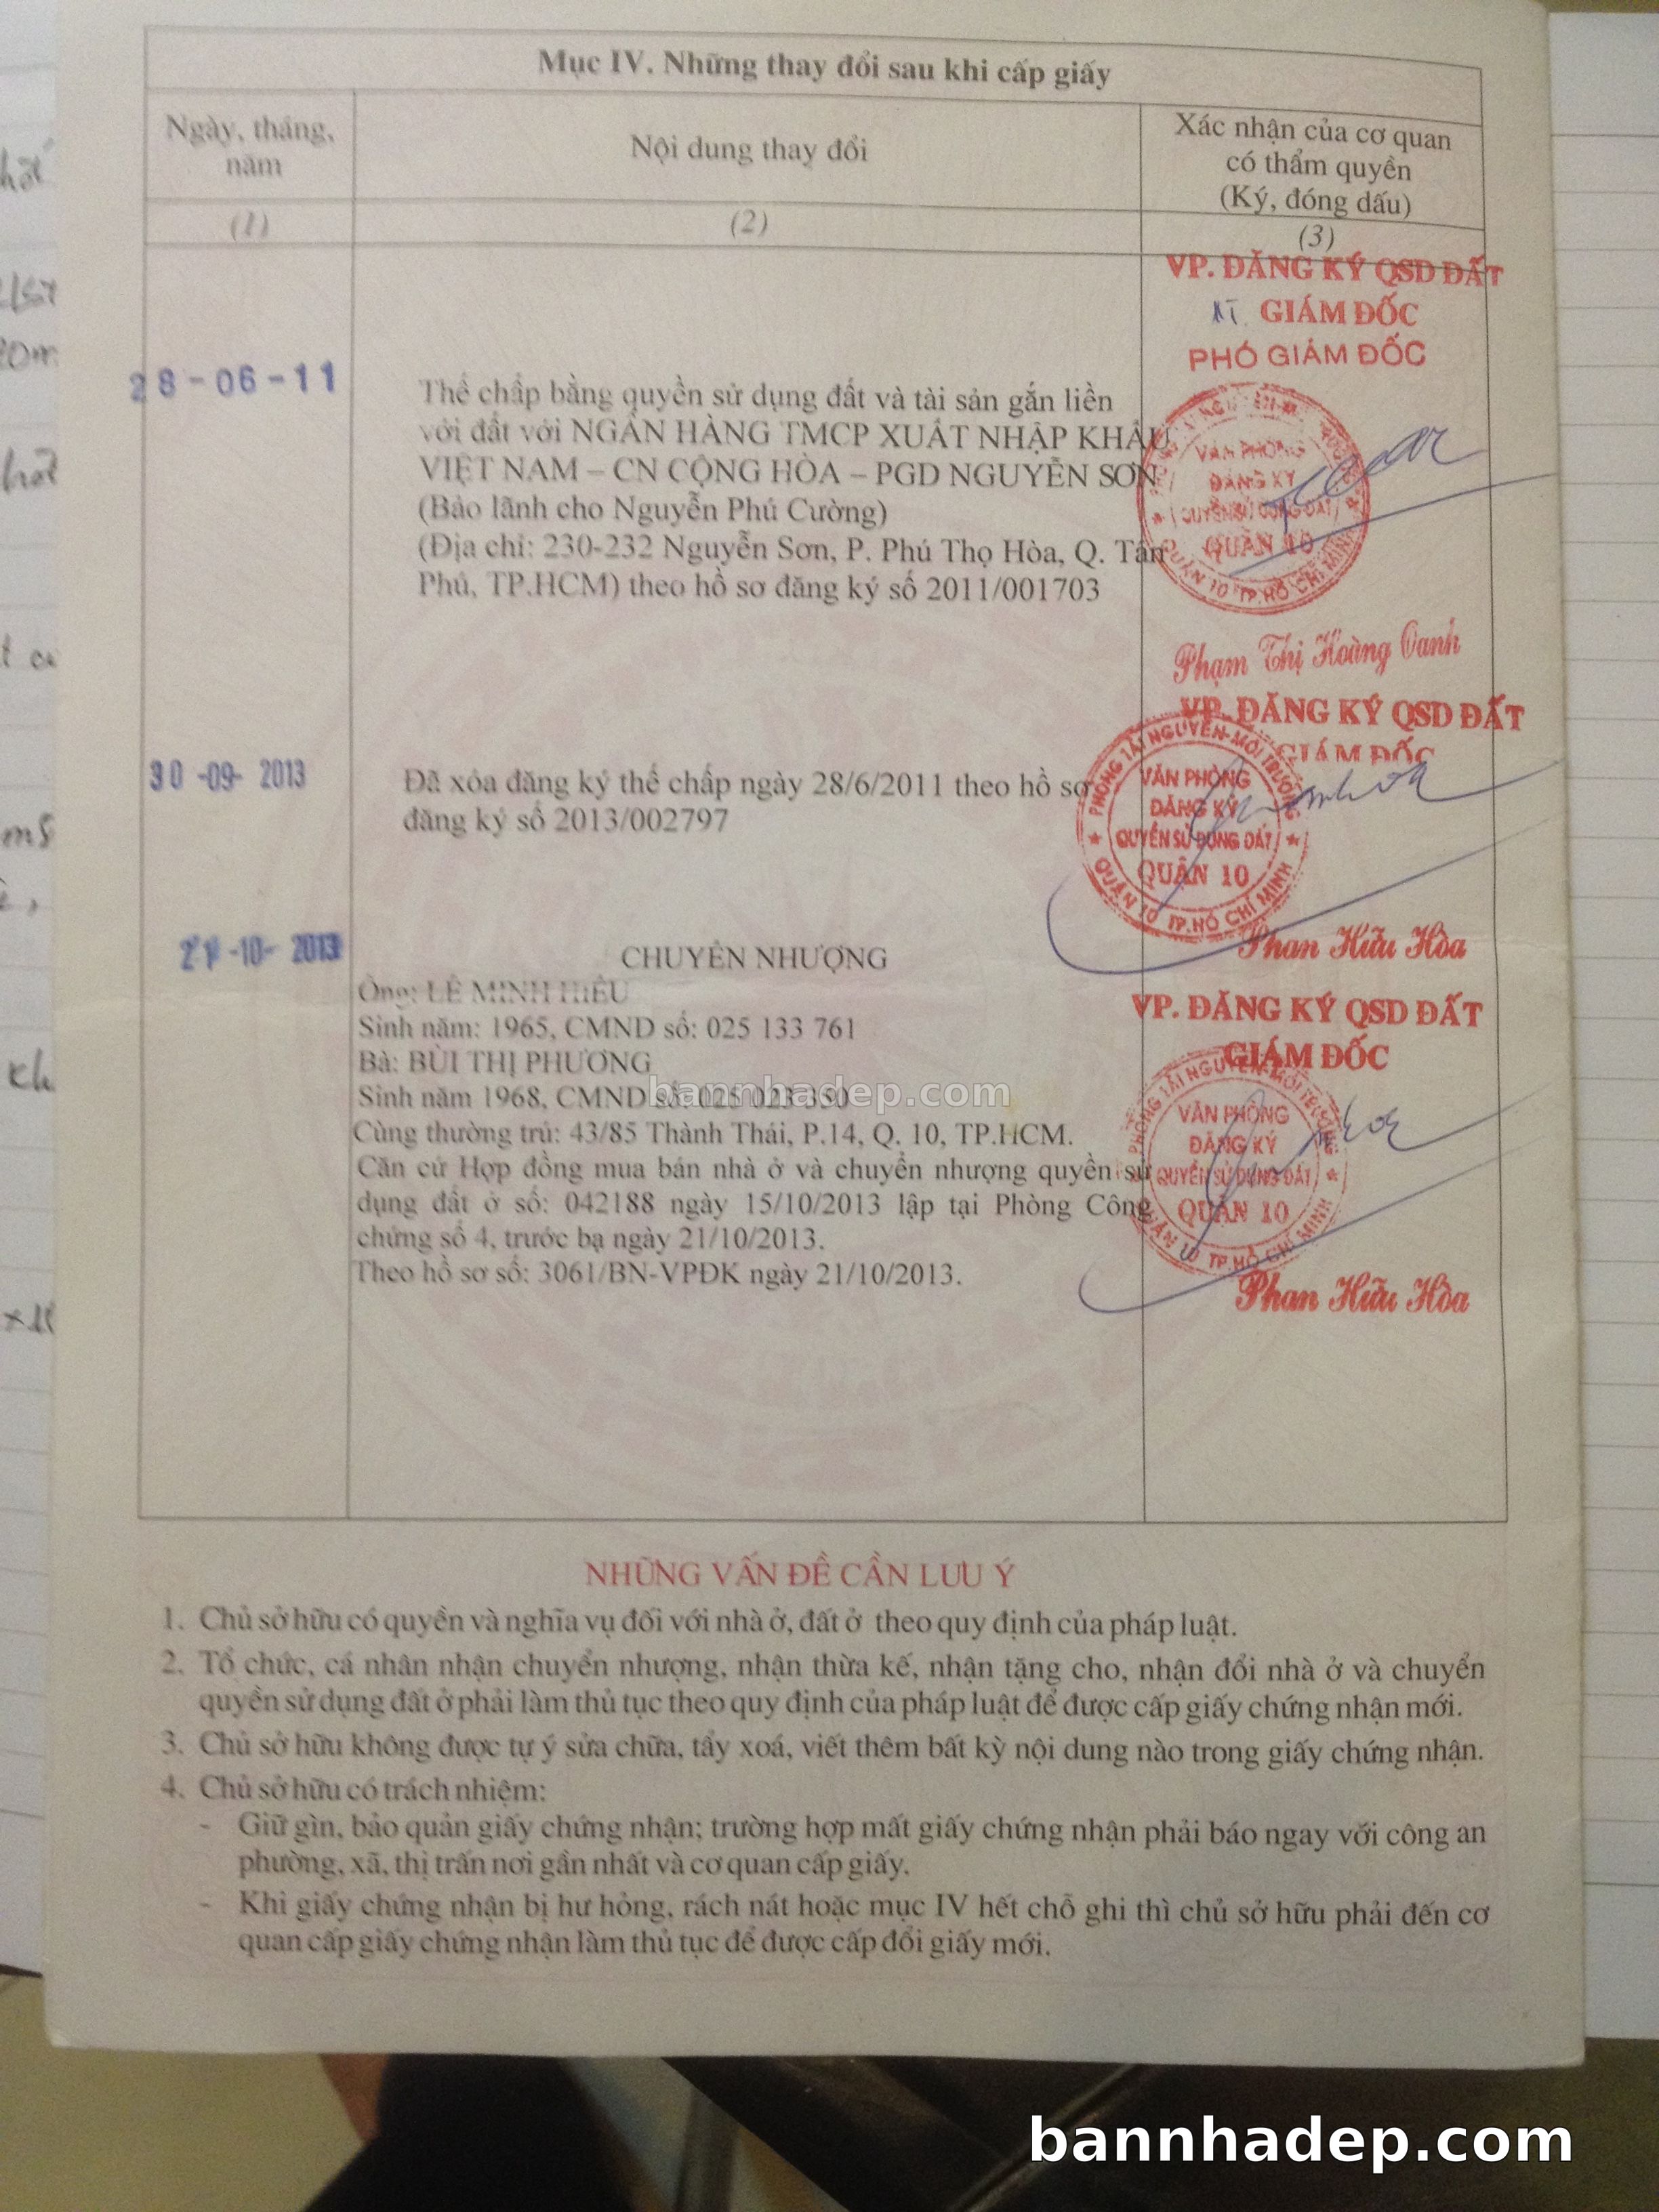 Mục IV. Những thay đổi sau khi cấp giấy
Ngày, tháng,
năm
Nội dung thay đổi
Xác nhận của cơ quan
có thẩm quyền
(Ký, đóng dấu)
(1)
(2)
(3)
VP. ĐĂNG KÝ QSD ĐẤT
KT. GIÁM ĐỐC
PHÓ GIÁM ĐỐC
28-06-11
Thế chấp bằng quyền sử dụng đất và tài sản gắn liền
với đất với NGÂN HÀNG TMCP XUẤT NHẬP KHẨU
VIỆT NAM – CN CỘNG HÒA – PGD NGUYỄN SƠN
(Bảo lãnh cho Nguyễn Phú Cường)
(Địa chỉ: 230-232 Nguyễn Sơn, P. Phú Thọ Hòa, Q. Tân
Phú, TP.HCM) theo hồ sơ đăng ký số 2011/001703
VĂN PHÒNG
ĐĂNG KÝ
QUYỀN SỬ DỤNG ĐẤT
QUẬN 10
QUẬN 10 TP.HỒ CHÍ MINH
Phạm Thị Hoàng Oanh
VP. ĐĂNG KÝ QSD ĐẤT
GIÁM ĐỐC
30-09-2013
Đã xóa đăng ký thế chấp ngày 28/6/2011 theo hồ sơ
đăng ký số 2013/002797
PHÒNG TÀI NGUYÊN-MÔI TRƯỜNG
VĂN PHÒNG
ĐĂNG KÝ
QUYỀN SỬ DỤNG ĐẤT
QUẬN 10
QUẬN 10 TP.HỒ CHÍ MINH
Phan Hữu Hòa
21-10-2013
CHUYỂN NHƯỢNG
Ông: LÊ MINH HIẾU
Sinh năm: 1965, CMND số: 025 133 761
Bà: BÙI THỊ PHƯƠNG
Sinh năm 1968, CMND số: 025 023 350
Cùng thường trú: 43/85 Thành Thái, P.14, Q. 10, TP.HCM.
Căn cứ Hợp đồng mua bán nhà ở và chuyển nhượng quyền sử
dụng đất ở số: 042188 ngày 15/10/2013 lập tại Phòng Công
chứng số 4, trước bạ ngày 21/10/2013.
Theo hồ sơ số: 3061/BN-VPĐK ngày 21/10/2013.
bannhadep.com
VP. ĐĂNG KÝ QSD ĐẤT
GIÁM ĐỐC
PHÒNG TÀI NGUYÊN-MÔI TRƯỜNG
VĂN PHÒNG
ĐĂNG KÝ
QUYỀN SỬ DỤNG ĐẤT
QUẬN 10
QUẬN 10 TP.HỒ CHÍ MINH
Phan Hữu Hòa
NHỮNG VẤN ĐỀ CẦN LƯU Ý
1. Chủ sở hữu có quyền và nghĩa vụ đối với nhà ở, đất ở theo quy định của pháp luật.
2. Tổ chức, cá nhân nhận chuyển nhượng, nhận thừa kế, nhận tặng cho, nhận đổi nhà ở và chuyển
quyền sử dụng đất ở phải làm thủ tục theo quy định của pháp luật để được cấp giấy chứng nhận mới.
3. Chủ sở hữu không được tự ý sửa chữa, tẩy xoá, viết thêm bất kỳ nội dung nào trong giấy chứng nhận.
4. Chủ sở hữu có trách nhiệm:
- Giữ gìn, bảo quản giấy chứng nhận; trường hợp mất giấy chứng nhận phải báo ngay với công an
phường, xã, thị trấn nơi gần nhất và cơ quan cấp giấy.
- Khi giấy chứng nhận bị hư hỏng, rách nát hoặc mục IV hết chỗ ghi thì chủ sở hữu phải đến cơ
quan cấp giấy chứng nhận làm thủ tục để được cấp đổi giấy mới.
bannhadep.com